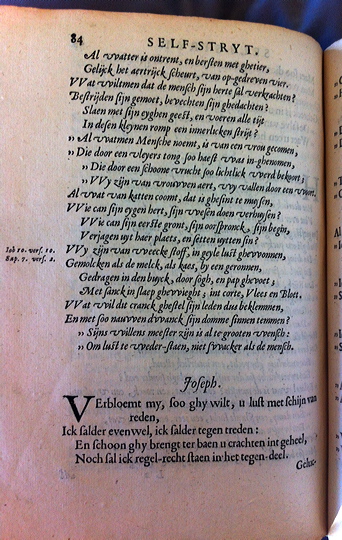 84 SELF-STRYT.
Al vvatter is ontrent, en bersten met ghetier,
Gelijck het aertrijck scheurt, van op-gedreven vier.
VVat vviltmen dat de mensch sijn herte sal verkrachten?
Bestrijden sijn gemoet, bevechten sijn ghedachten?
Slaen met sijn eyghen geest, en voeren alle tijt
In desen kleynen romp een innerlicken strijt?
„ Al vvatmen Mensche noemt, is van een vrou gecomen,
„ Die door een vleyers tong soo haest vvas in-ghenomen,
„ Die door een schoone vrucht soo lichtlick vverd bekort;
„ VVy zijn van vrouvven aert, vvy vallen door een
Al vvat van katten coomt, dat is ghesint te muysen,
VVie can sijn eygen hert, sijn vvesen doen verhuysen?
VVie can sijn eerste gront, sijn oorspronck, sijn begin,
Verjagen uyt haer plaets, en setten uytten sin?
Iob 10. vers. 10. VVy zijn van vveecke stoff, in geyle lust ghevvonnen,
Sap. 7. vers. 2. Gemolcken als de melck, als kaes, by een geronnen,
Gedragen in den buyck, door sogh, en pap ghevoet;
Met sanck in slaep ghevvieght; int corte, Vlees en Bloet.
VVat vvil dit cranck ghestel sijn leden dus beklemmen,
En met soo nauvven dvvanck sijn domme sinnen temmen?
„ Sijns vvillens meester zijn is al te grooten vvensch:
„ Om lust te vveder-staen, niet svvacker als de mensch.
Joseph.
VErbloemt my, soo ghy wilt, u lust met schijn van
reden,
Ick salder evenwel, ick salder tegen treden:
En schoon ghy brengt ter baen u crachten int geheel,
Noch sal ick regel-recht staen in het tegen-deel.
Geluc-